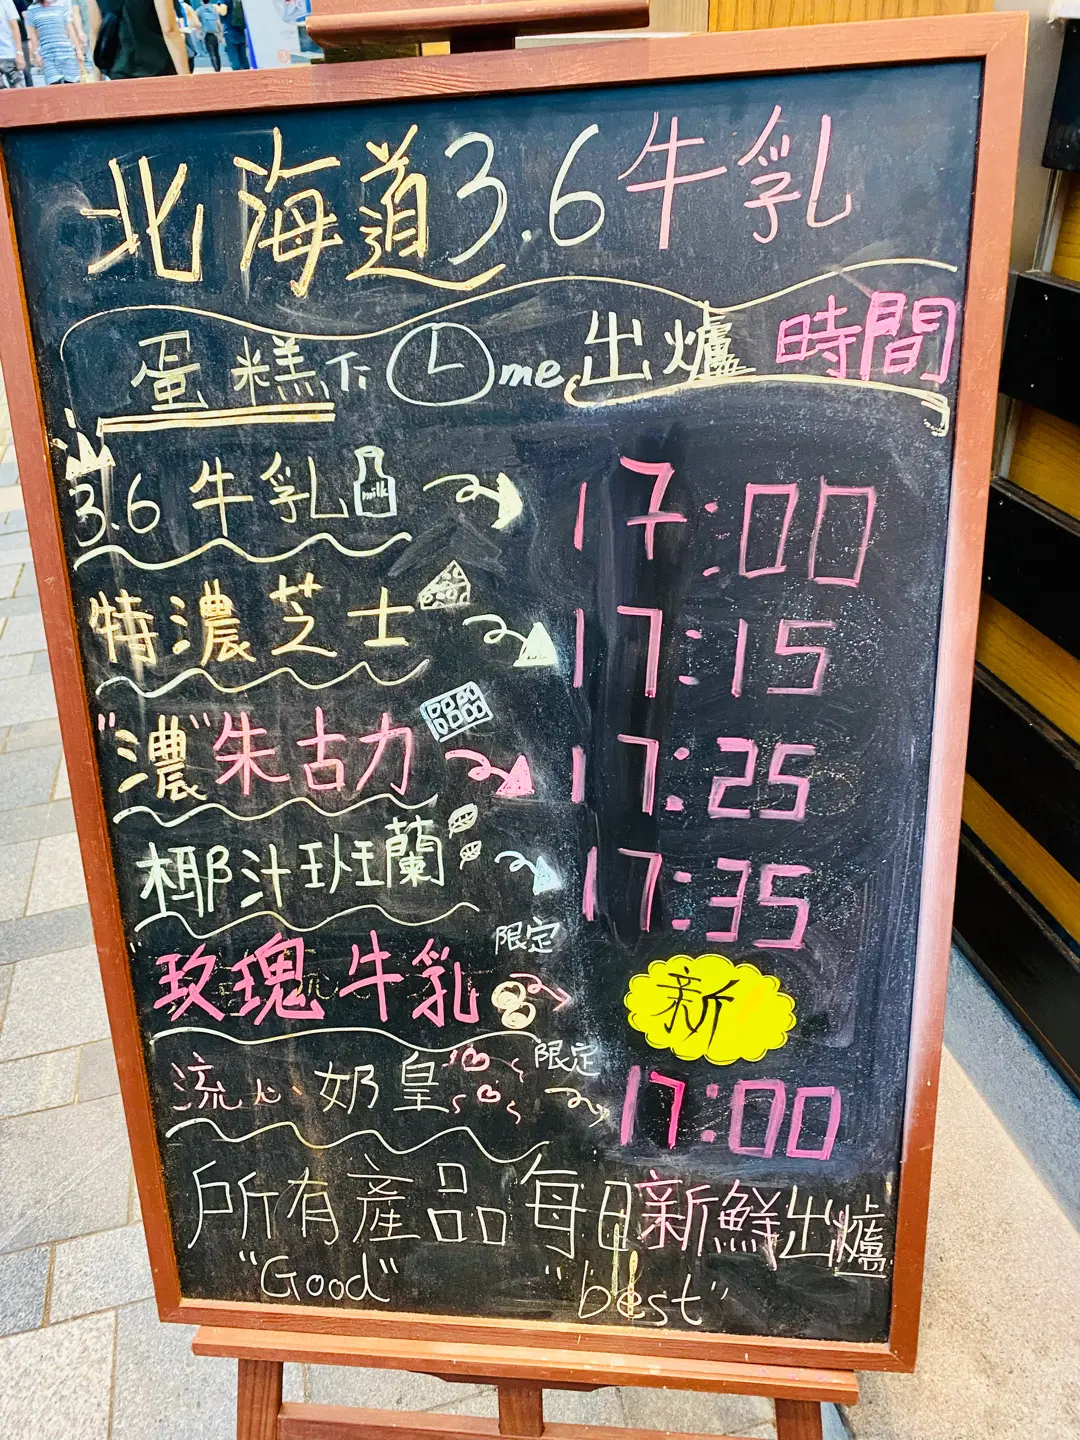 北海道3.6牛乳
蛋糕下 me 出爐 時間
3.6 牛乳 milk 17:00
特濃芝士 17:15
"濃"朱古力 17:25
椰汁班蘭 17:35
玫瑰牛乳 限定 新
流心奶皇 限定 17:00
所有產品每日新鮮出爐
"Good" "best"